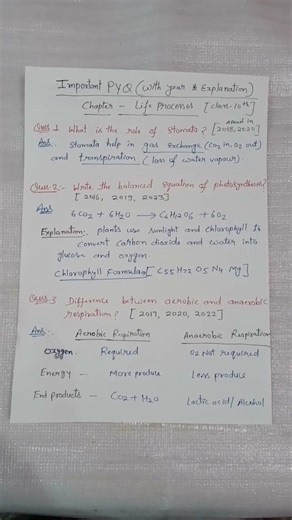 Important PYQ (with year & Explanation)
Chapter - Life Processes [class-10th]
Ques-1 What is the role of stomata? [Asked in 2018, 2020]
Ans:- Stomata help in gas exchange (CO2 in, O2 out)
and transpiration (loss of water vapour).
Ques-2:- Write the balanced equation of photosynthesis?
[2016, 2019, 2023]
Ans
6CO2 + 6H2O → C6H12O6 + 6O2
Explanation:. plants use sunlight and chlorophyll to
convert carbon dioxide and water into
glucose and oxygen.
Chlorophyll Formula [C55H72O5N4Mg]
Ques-3 Difference between aerobic and anaerobic
respiration? [2017, 2020, 2022]
Ans:. Aerobic Respiration Anaerobic Respiration
Oxygen - Required O2 Not required
Energy - More produce Less produce
End Products - CO2 + H2O Lactic acid/Alcohol